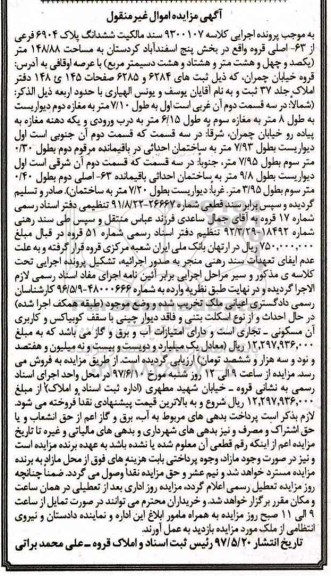 آگهی مزایده اموال غیرمنقول
به موجب پرونده اجرایی کلاسه ۹۳۰۰۱۰۷ سند مالکیت ششدانگ پلاک ۶۹۰۴ فرعی
از ۶۳- اصلی قروه واقع در بخش پنج اسفندآباد کردستان به مساحت ۱۴۸/۸۸ متر
(یکصد و چهل و هشت متر و هشتاد و هشت دسیمتر مربع) با عرصه اوقافی به آدرس:
قروه خیابان چمران، که ذیل ثبت های ۶۲۸۴ و ۶۲۸۵ صفحات ۱۴۵ و ۱۴۸ دفتر
املاک جلد ۳۷ ثبت و به نام آقایان یوسف و یونس الهیاری با حدود اربعه ذیل الذکر:
(شمالا: در سه قسمت دوم آن غربی است اول به طول ۷/۱۰ متر به مغازه دوم دیواریست
به طول ۸ متر به مغازه سوم به طول ۶/۱۵ متر به درب ورودی و یکه دهنه مغازه به
پیاده رو خیابان چمران، شرقا: در سه قسمت که قسمت دوم آن جنوبی است اول
دیواریست بطول ۷/۹۳ متر به ساختمان احداثی در باقیمانده مرقوم دوم بطول ۰/۳۰
متر سوم بطول ۷/۹۵ متر، جنوبا: در سه قسمت که قسمت دوم آن شرقی است اول
دیواریست بطول ۹/۸ متر به ساختمان احداثی باقیمانده ۶۳- اصلی دوم بطول ۰/۴۰
متر سوم بطول ۳/۹۵ متر، غربا: دیواریست بطول ۷/۲۰ متر به ساختمان)، صادر و تسلیم
گردیده و سپس برابر سند قطعی شماره ۲۶۶۶۷-۹۱/۸/۲۲ تنظیمی دفتر اسناد رسمی
شماره ۱۷ قروه به آقای جمال ساعدی فرزند عباس منتقل و سپس طی سند رهنی
شماره ۱۸۴۹۲-۹۲/۳/۲۹ تنظیم دفتر اسناد رسمی شماره ۵۱ قروه در قبال مبلغ
۷۵۰,۰۰۰,۰۰۰ ریال در ارتهان بانک ملی ایران شعبه مرکزی قروه قرار گرفته و به علت
عدم ایفای تعهدات سند رهنی منجر به صدور اجرائیه، تشکیل پرونده اجرایی تحت
کلاسه ی مذکور و سیر مراحل اجرایی برابر آئین نامه اجرای مفاد اسناد رسمی لازم
الاجرا گردیده و در نهایت طبق نظریه وارده به شماره ۴۸۰۰۰۶۶۶-۹۶/۵/۹ کارشناسان
رسمی دادگستری اعیانی ملک تخریب شده و وضع موجود (طبقه همکف اجرا شده)
در حال احداث و از نوع اسکلت بتنی و فاقد دیوار چینی با سقف کوبیاکس و کاربری
آن مسکونی - تجاری است و دارای امتیازات آب و برق و گاز می باشد که به مبلغ
۱۲,۲۹۷,۹۳۶,۰۰۰ ریال (معادل یک میلیارد و دویست و بیست و نه میلیون و هفتصد
و نود و سه هزار و ششصد تومان) ارزیابی گردیده است. از طریق مزایده به فروش می
رسد. مزایده از ساعت ۹ الی ۱۲ روز شنبه مورخ ۹۷/۶/۱۰ در محل واحد اجرای اسناد
رسمی به نشانی قروه - خیابان شهید مطهری (اداره ثبت اسناد و املاک) از مبلغ
۱۲,۲۹۷,۹۳۶,۰۰۰ ریال شروع و به بالاترین قیمت پیشنهادی نقدا فروخته می شود.
لازم بذکر است پرداخت بدهی های مربوط به آب، برق و گاز اعم از حق انشعاب و یا
حق اشتراک و مصرف و نیز بدهی های شهرداری و بدهی های مالیاتی و غیره تا تاریخ
مزایده اعم از اینکه رقم قطعی آن معلوم شده یا نشده باشد به عهده برنده مزایده است
و نیز در صورت وجود مازاد، وجوه پرداختی بابت هزینه های فوق از محل مازاد به برنده
مزایده مسترد خواهد شد و نیم عشر و حق مزایده نقدا وصول می گردد. ضمنا چنانچه
روز مزایده تعطیل رسمی اعلام گردد، مزایده روز اداری بعد از تعطیلی در همان ساعت
و مکان مقرر برگزار خواهد شد. و خریداران محترم می توانند در صورت تمایل از ساعت
۹ الی ۱۱ صبح روز مزایده به همراه مامور ابلاغ این اداره و نماینده دادستان و نیروی
انتظامی از ملک مورد مزایده بازدید به عمل آورند.
تاریخ انتشار ۹۷/۵/۲۰ رئیس ثبت اسناد و املاک قروه - علی محمد براتی